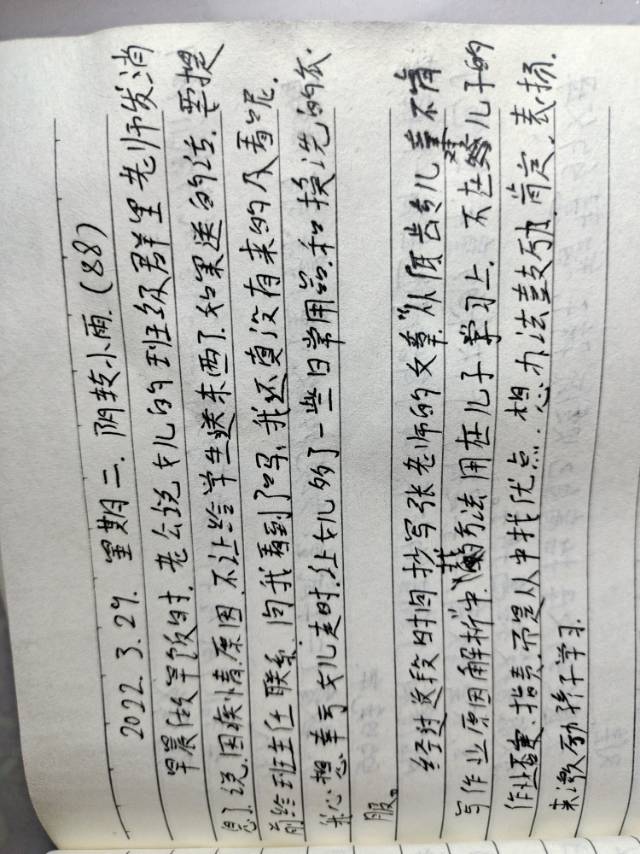 2022.3.29. 星期二. 阴转小雨. (88)
早晨做早饭时. 老公说女儿的班级群里老师发消
息了说. 因疾情原因. 不让给学生送东西了. 如果送的话. 要提
前给班主任联系. 问我看到了吗. 我还真没有来的及看呢.
我心想. 幸亏女儿走时. 让女儿多了一些日常用品. 和换洗的衣
服。
经过这段时间抄写张老师的文章. "从 岀 儿 不肯
写作业原因解析"中的方法用在儿子学习上. 不在 儿子的
作业 指责. 而是从中找优点. 想办法鼓励. 肯定. 表扬.
来激励孩子学习.